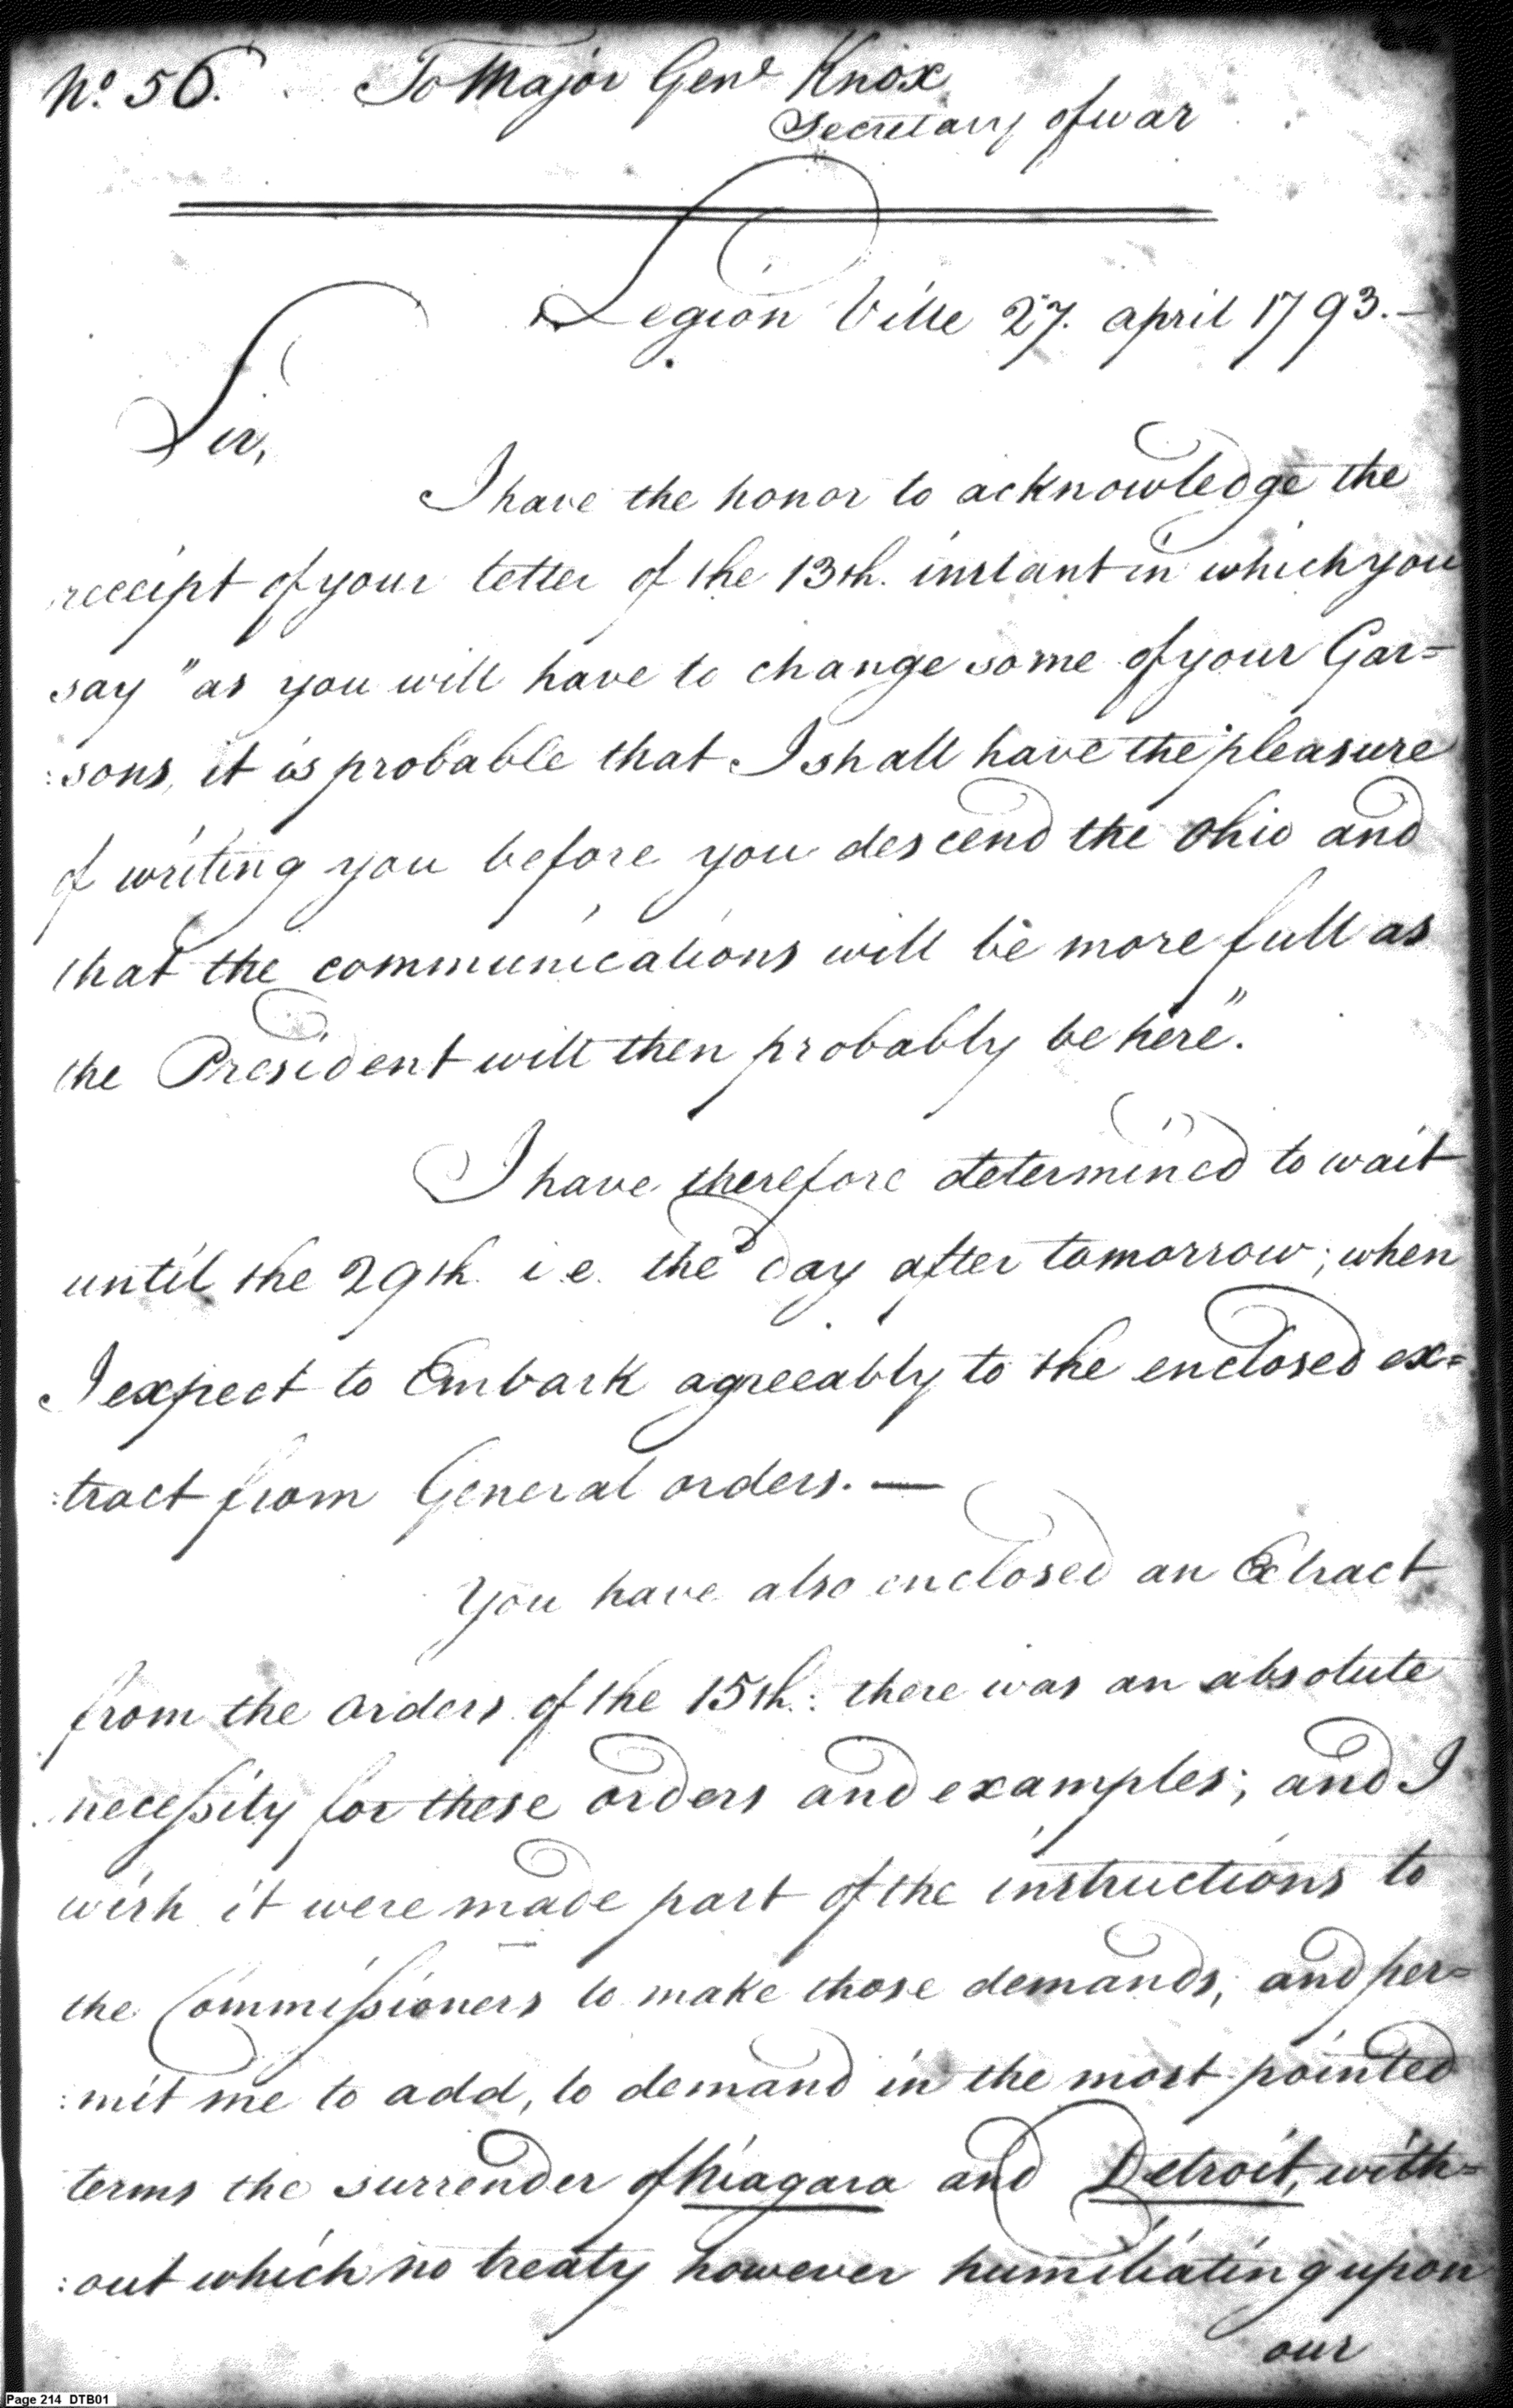 No. 56. To Major Genl Knox
Secretary of war
Legion Ville 27. april 1793.—
Sir,
I have the honor to acknowledge the
receipt of your letter of the 13th. instant in which you
say "as you will have to change some of your Gar=
:sons, it is probable that I shall have the pleasure
of writing you before you descend the Ohio and
that the communications will be more full as
the President will then probably be here".
I have therefore determined to wait
until the 29th. i.e. the day after tomorrow; when
I expect to Embark agreeably to the enclosed ex=
:tract from General orders.—
You have also enclosed an Extract
from the orders of the 15th.: there was an absolute
necessity for these orders and examples; and I
wish it were made part of the instructions to
the Commissioners to make those demands; and per=
:mit me to add, to demand in the most pointed
terms the surrender of Niagara and Detroit, with=
:out which no treaty however humiliating upon
our
Page 214 DTB01